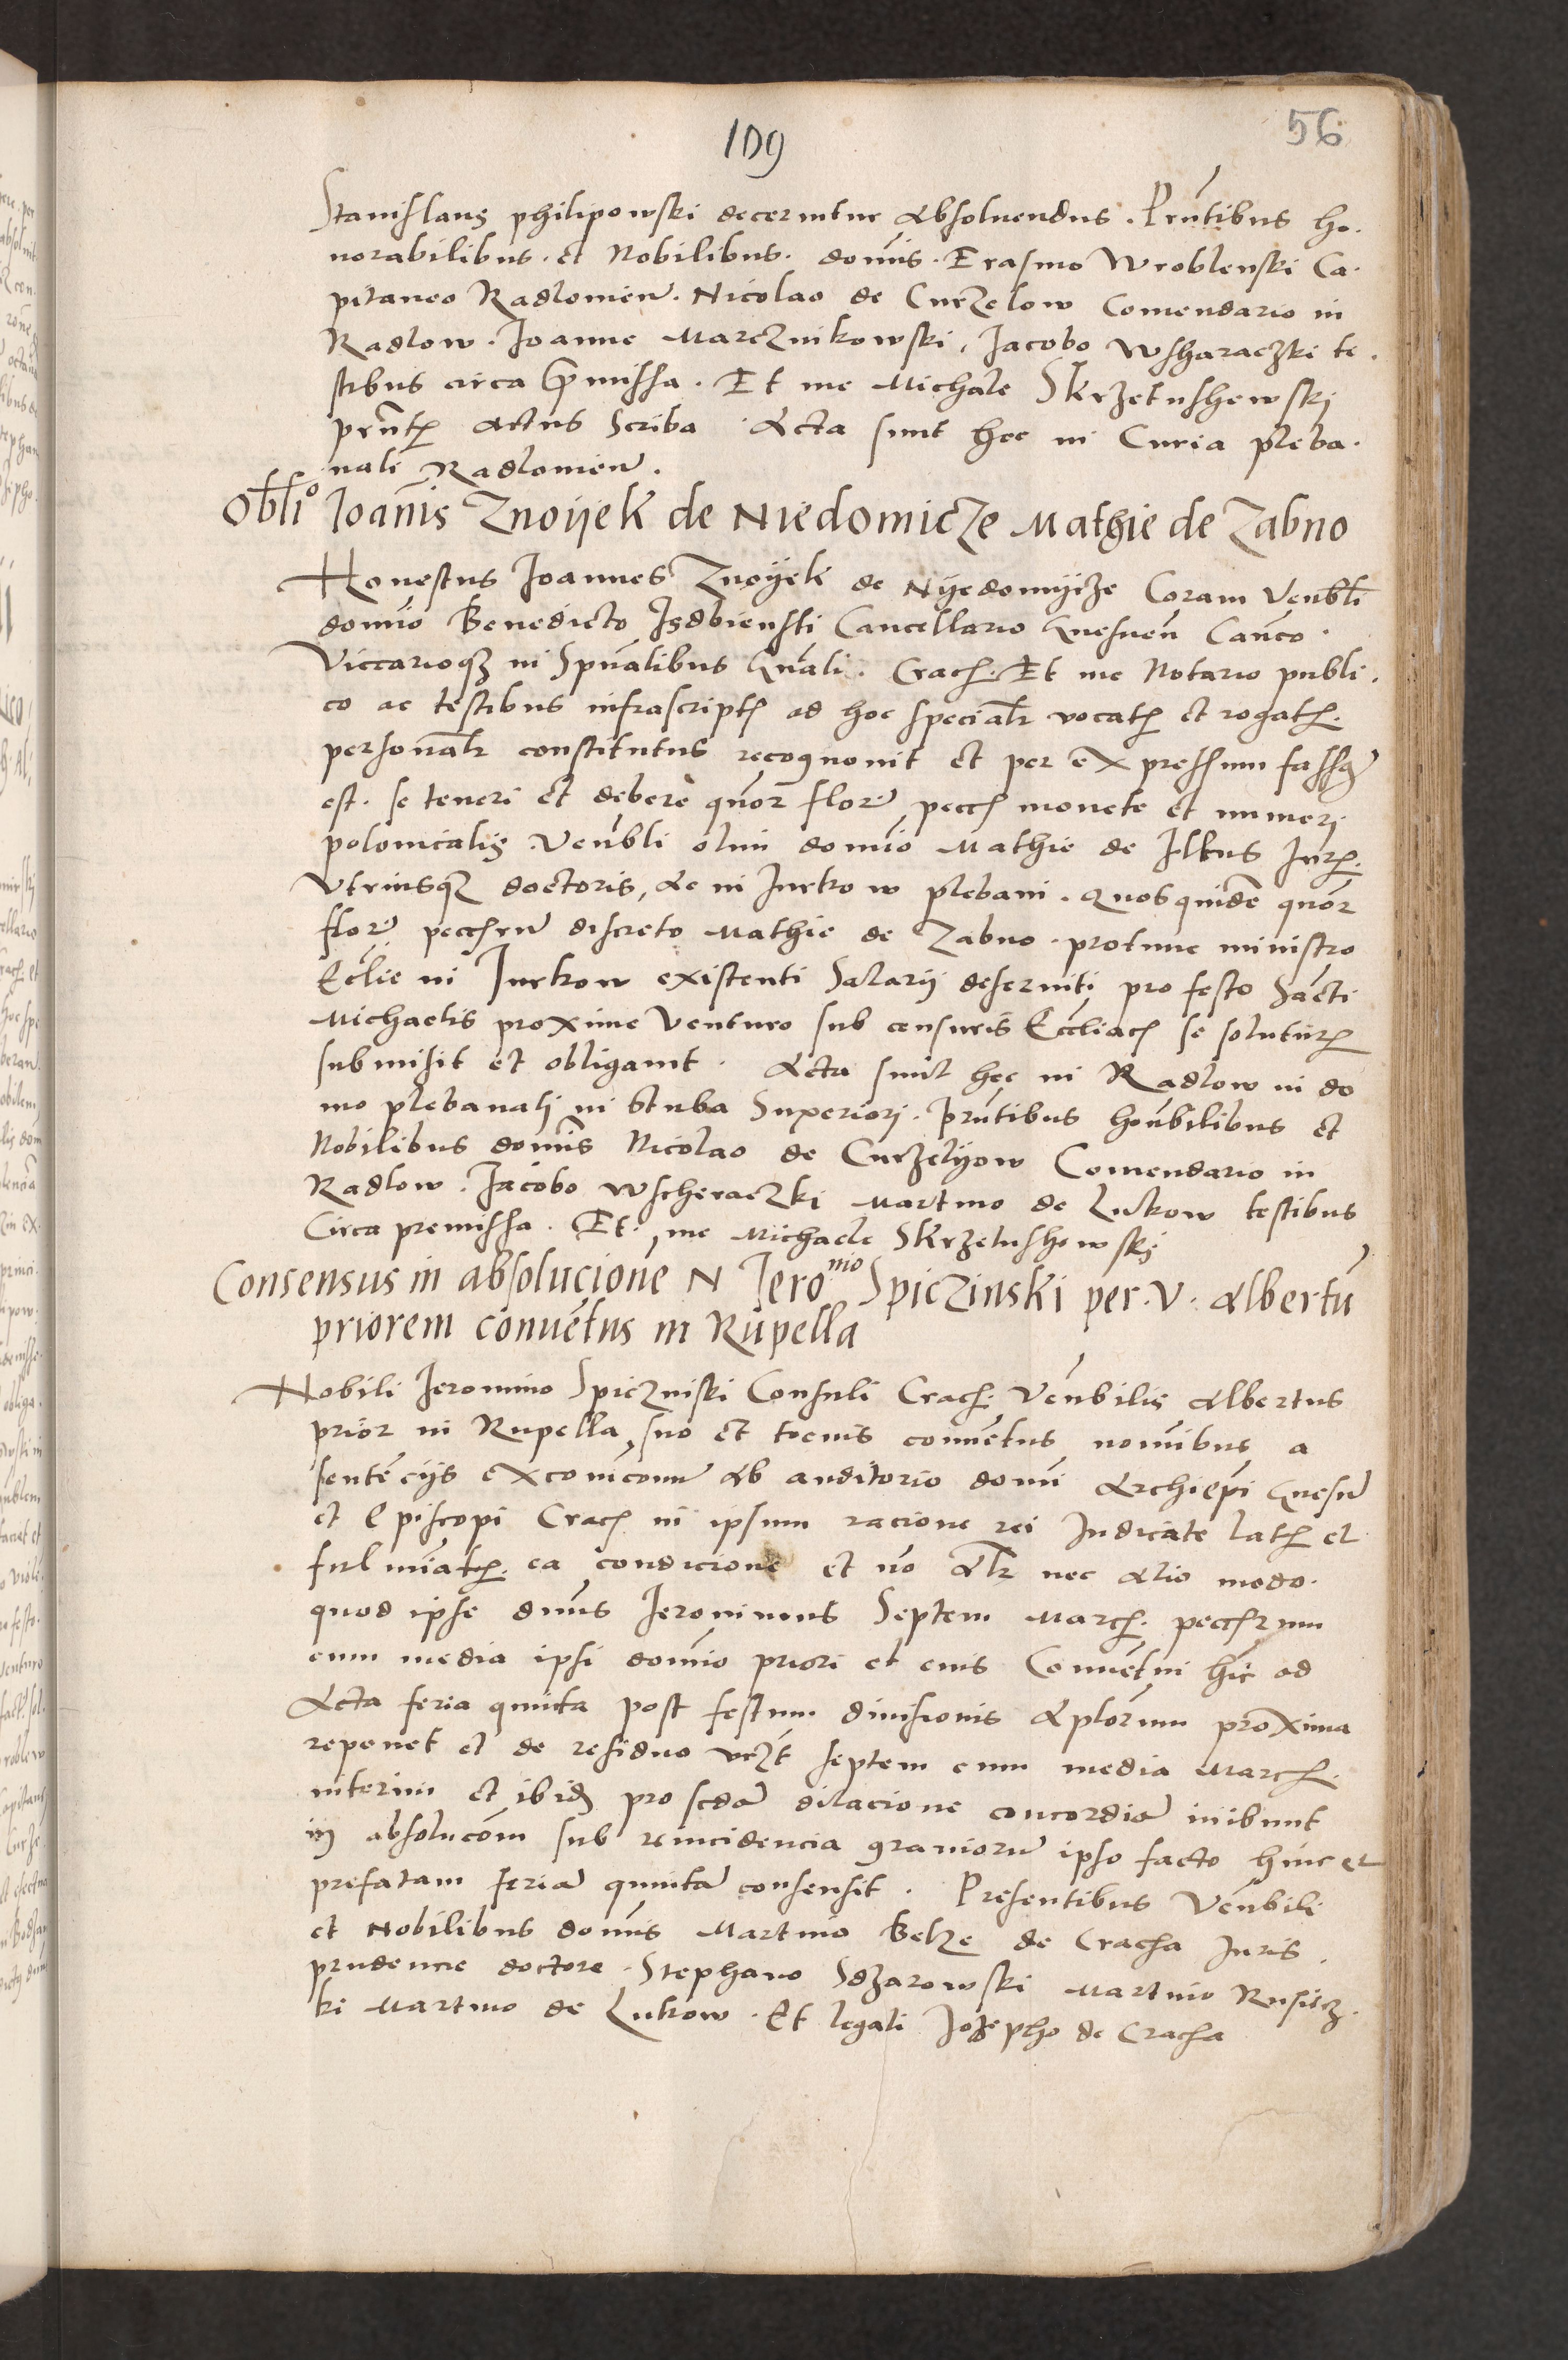 109
56
Stanislaus philipowski decernitur absoluendus. Prñtibus ho-
norabilibus. et Nobilibus. domīs. Erasmo Wroblenski Ca-
pitaneo Radlomień. Nicolao de Curzelow Comendario in
Radlow. Joanne Marcznikowski, Jacobo Wsharaczki te-
stibus circa p̄missa. Et me Michale Skrzetushewski
prñtis actus Scriba. Acta sunt hec in Curia pleba-
nali Radlomień.
Obl̄io Joañis Znoyek de Niedomicze Mathie de Zabno
Honestus Joannes Znoyek de Nyedomyize Coram Venbl̄i
domīo Benedicto Isdbienski Cancellario Gnesnen̄ Can̄co.
Viccarioqȝ in Spūalibus Gn̄ali. Crach. Et me Notario publi-
co ac testibus infrascriptis ad hoc specialr̄ vocatis et rogatis.
personalr̄ constitutus recognouit et per expressum fassus
est. se teneri et debere quor̄ flor̄ pecch monete et numeri
polonicalis. Venbl̄i olim domīo Mathie de Ilkus Juris.
Vtriusqȝ doctoris, ac in Jurkow plebani. Quosquidē quor̄
flor̄ pecchrū discreto Mathie de Zabno. protunc ministro
Eccl̄ie in Jurkow existenti Salarij deseruiti pro festo Sancti
Michaelis proxime Venturo sub censuris Eccliach se soluturȝ
submisit et obligauit. Acta sunt hec in Radlow in do
mo plebanali in Stuba Superiori. prñtibus hon̄bilibus et
Nobilibus domīs Nicolao de Curzelyow Comendario in
Radlow. Jacobo Wscheraczki Martino de Lukow testibus
Circa premissa. Et. me Michaele Skrzetushowski
Consensus in absolucione N Jeronimo Spiczinski per. V. Albertū
priorem conuētus in Rupella
Nobili Jeronimo Spiczinski Consuli Crach. Ven̄bilis Albertus
prior in Rupella, suo et tocius conuētus nomibus a
sentēcijs excomconū ab auditorio domī Archiep̄i Gnesn̄
et Episcopi Crach in ipsum racione rei Iudicate latis et
fulmīatis. ea condicione et nō alr̄ nec alio modo.
quod ipse dn̄us Jeronimus Septem March. pecchrum
cum media ipsi domīo priori et eius Conuētui hic ad
Acta feria quinta post festum diuisionis Aplorum proxima
reponet et de residuo vcȝt septem cum media March.
interim et ibidȝ pro scdā dilacione concordiā inibunt
in absolucōm sub reincidencia grauiorū ipso facto hinc et
prefatam feriā quintā consensit. Presentibus Ven̄bili
et Nobilibus domīs Martino Belze de Cracha Juris.
prudencie doctore. Stephano Sdzarowski Martino Rusiecz-
ki Martino de Lukow. Et legali Jozepho de Cracha